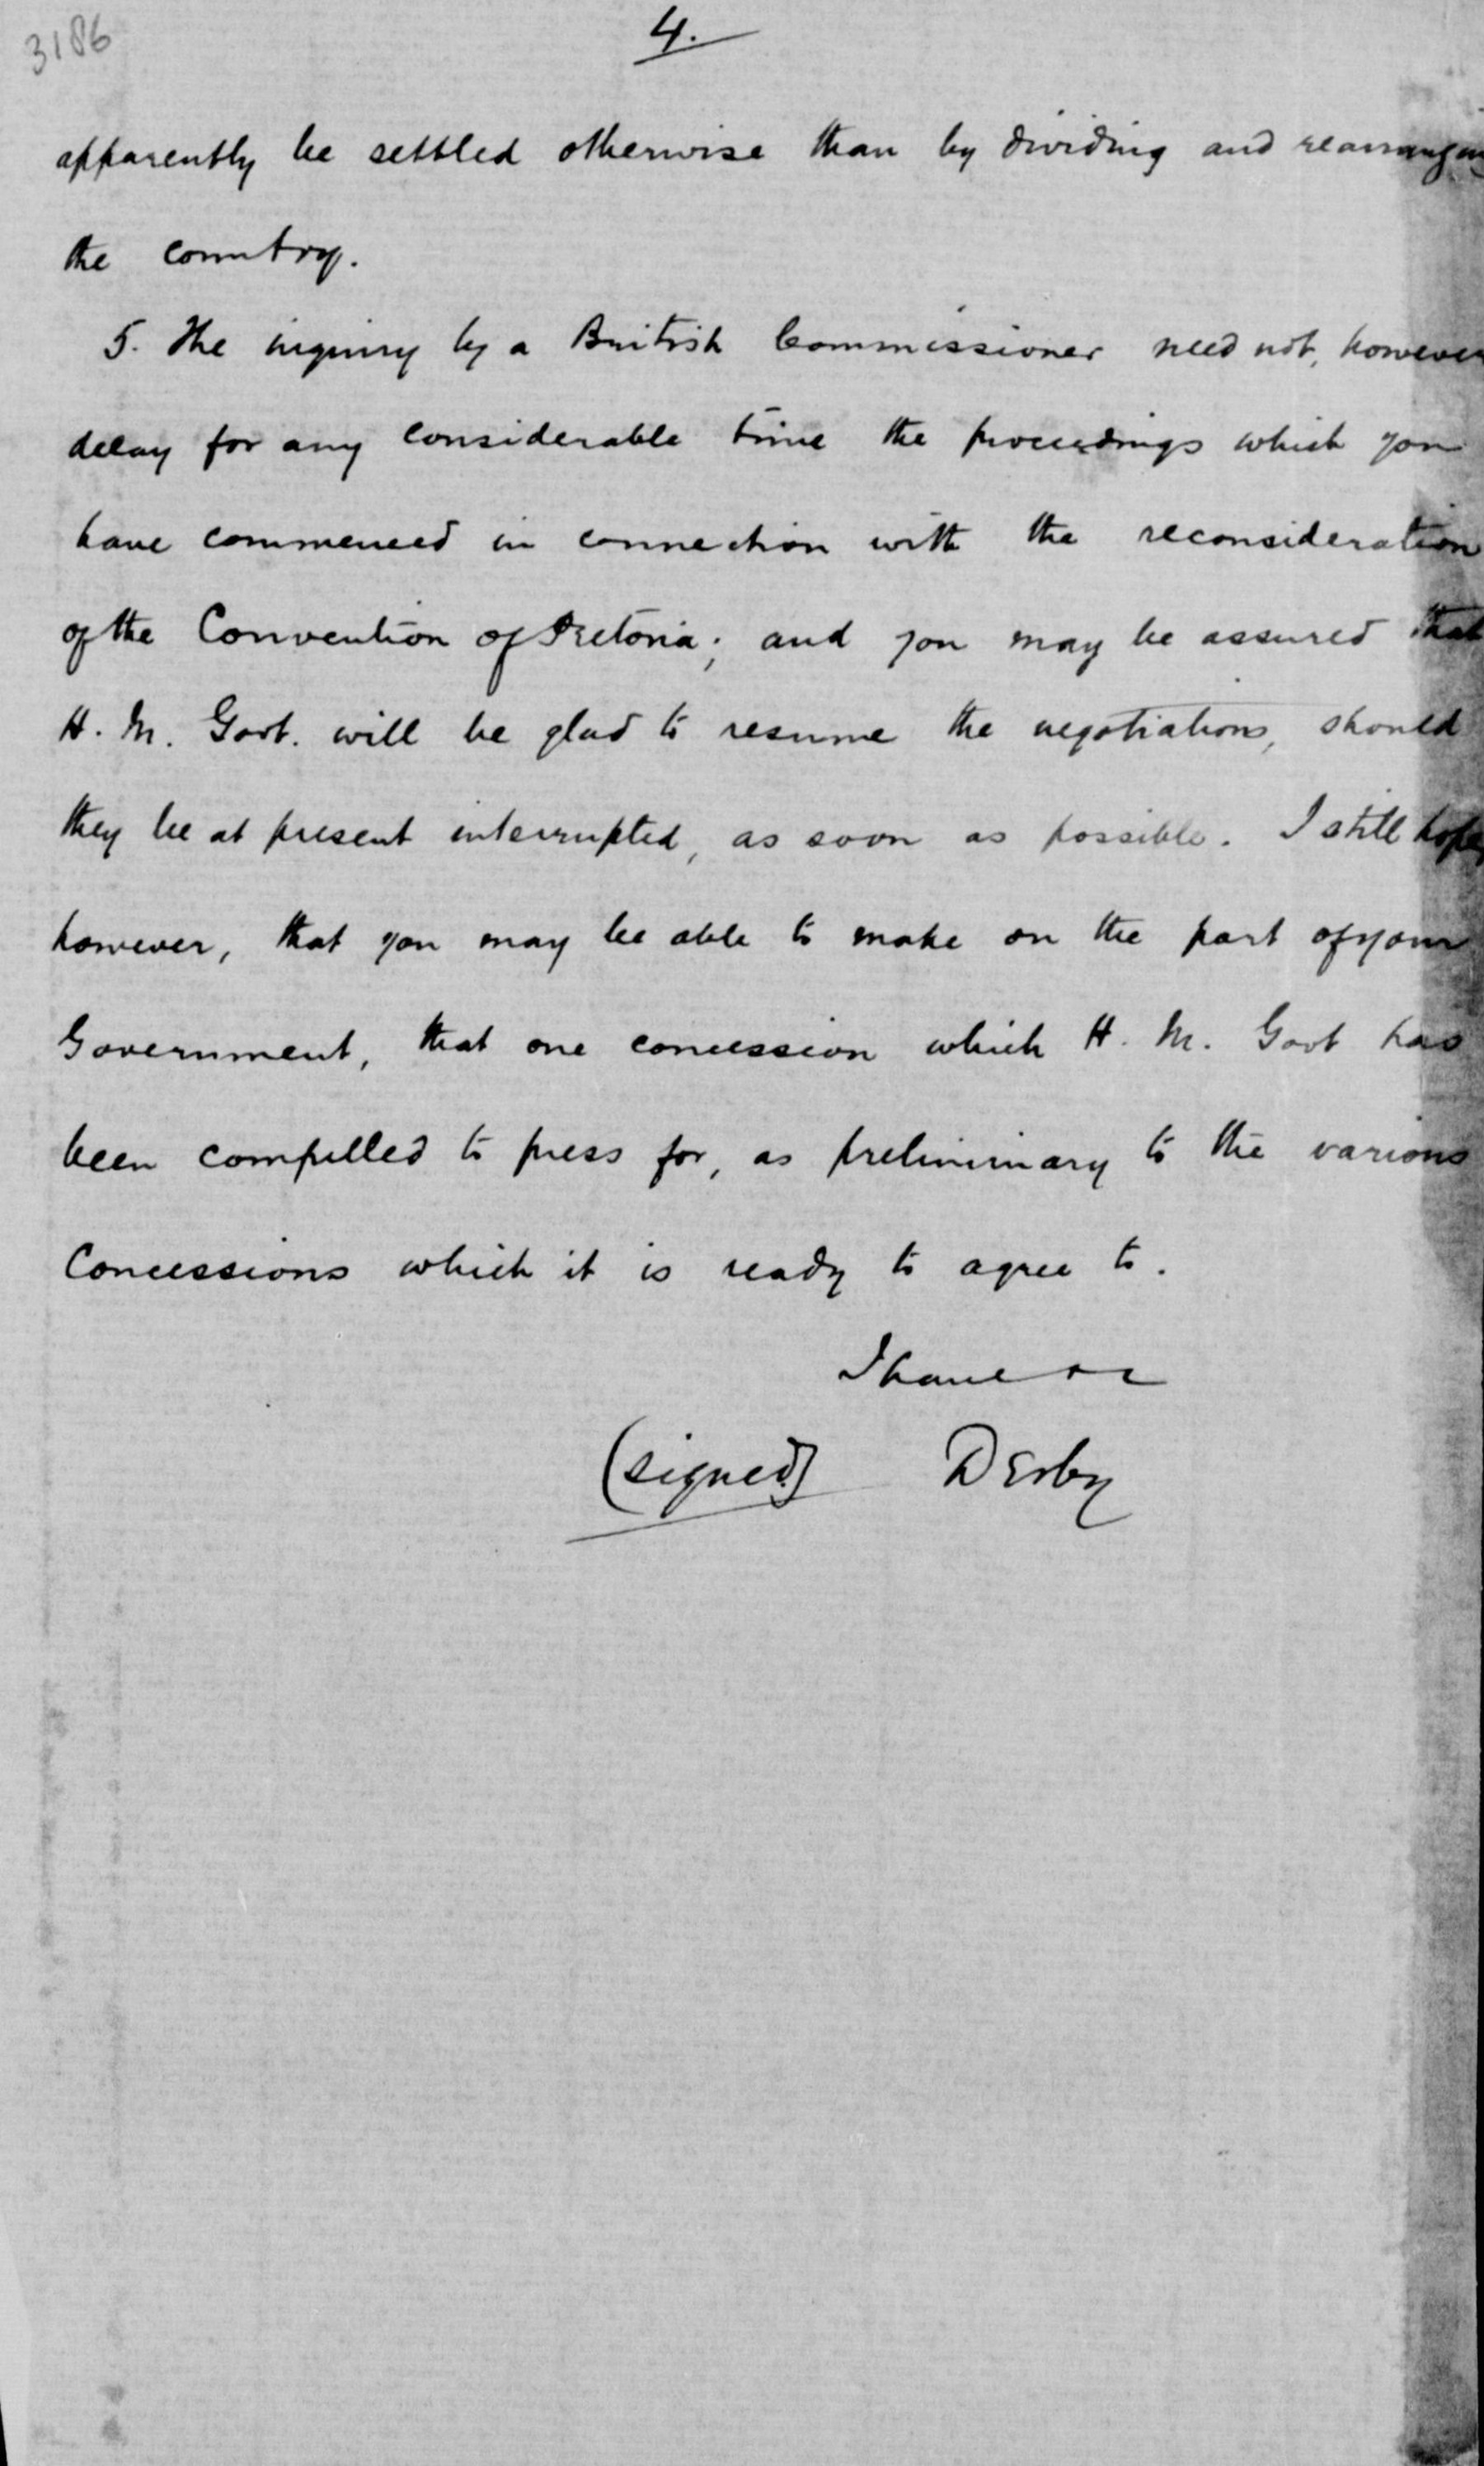 3186
4.
apparently be settled otherwise than by dividing and rearranging
the country.
5. The inquiry by a British Commissioner need not, however
delay for any considerable time the proceedings which you
have commenced in connection with the reconsideration
of the Convention of Pretoria; and you may be assured that
H. M. Govt. will be glad to resume the negotiations, should
they be at present interrupted, as soon as possible. I still hope,
however, that you may be able to make on the part of your
Government, that one concession which H. M. Govt has
been compelled to press for, as preliminary to the various
Concessions which it is ready to agree to.
I have &c
(signed) Derby